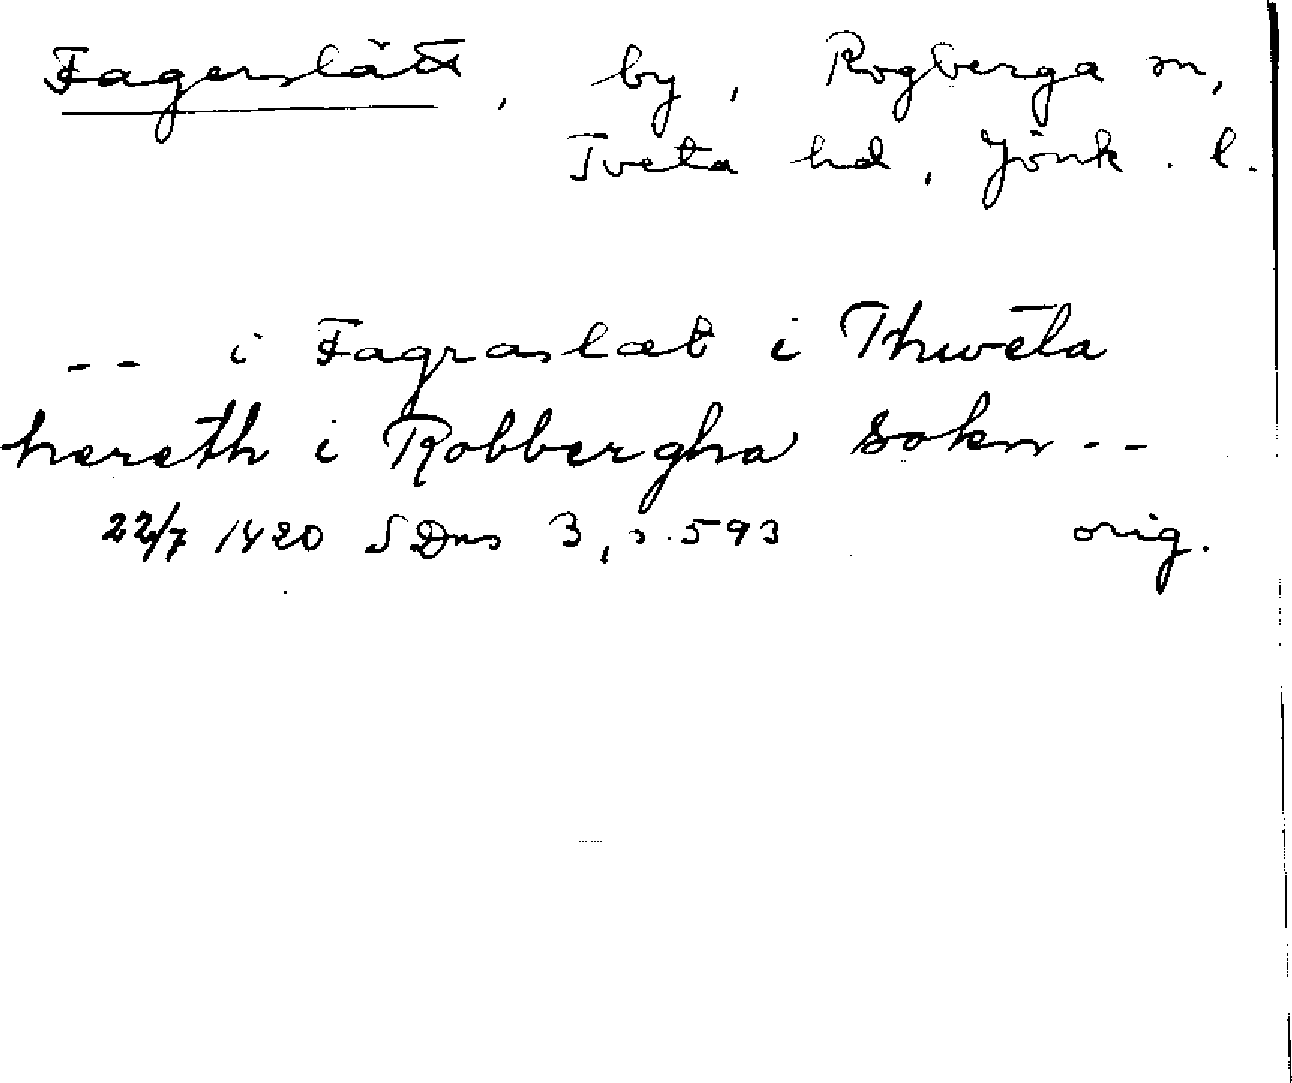 Fagerslätt, by, Rogberga sn,
Tveta hd, Jönk. l.
-- i Fagraslæt i Thweta
hæræth i Robbergha sokn --
22/7 1420 SDns 3, s. 593 orig.